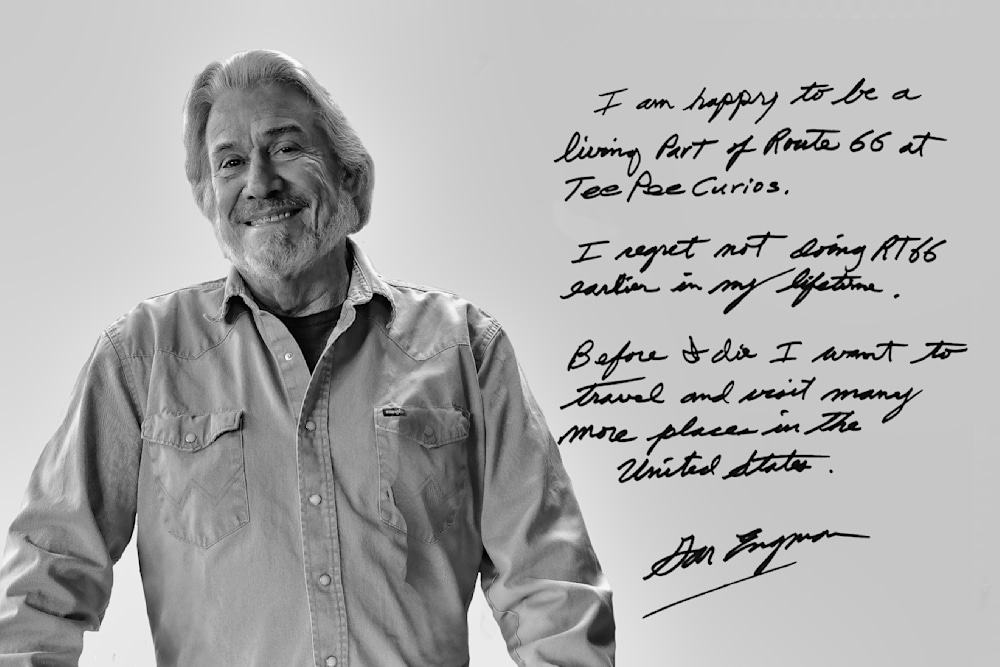 I am happy to be a
living Part of Route 66 at
Tee Pee Curios.
I regret not doing RT66
earlier in my lifetime.
Before I die I want to
travel and visit many
more places in the
United States.
Gar Engman